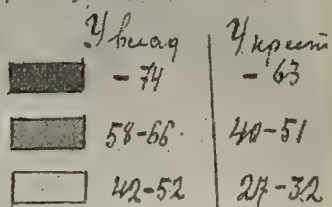 У влад У крест
- 74 - 63
58-66 40-51
42-52 27-32